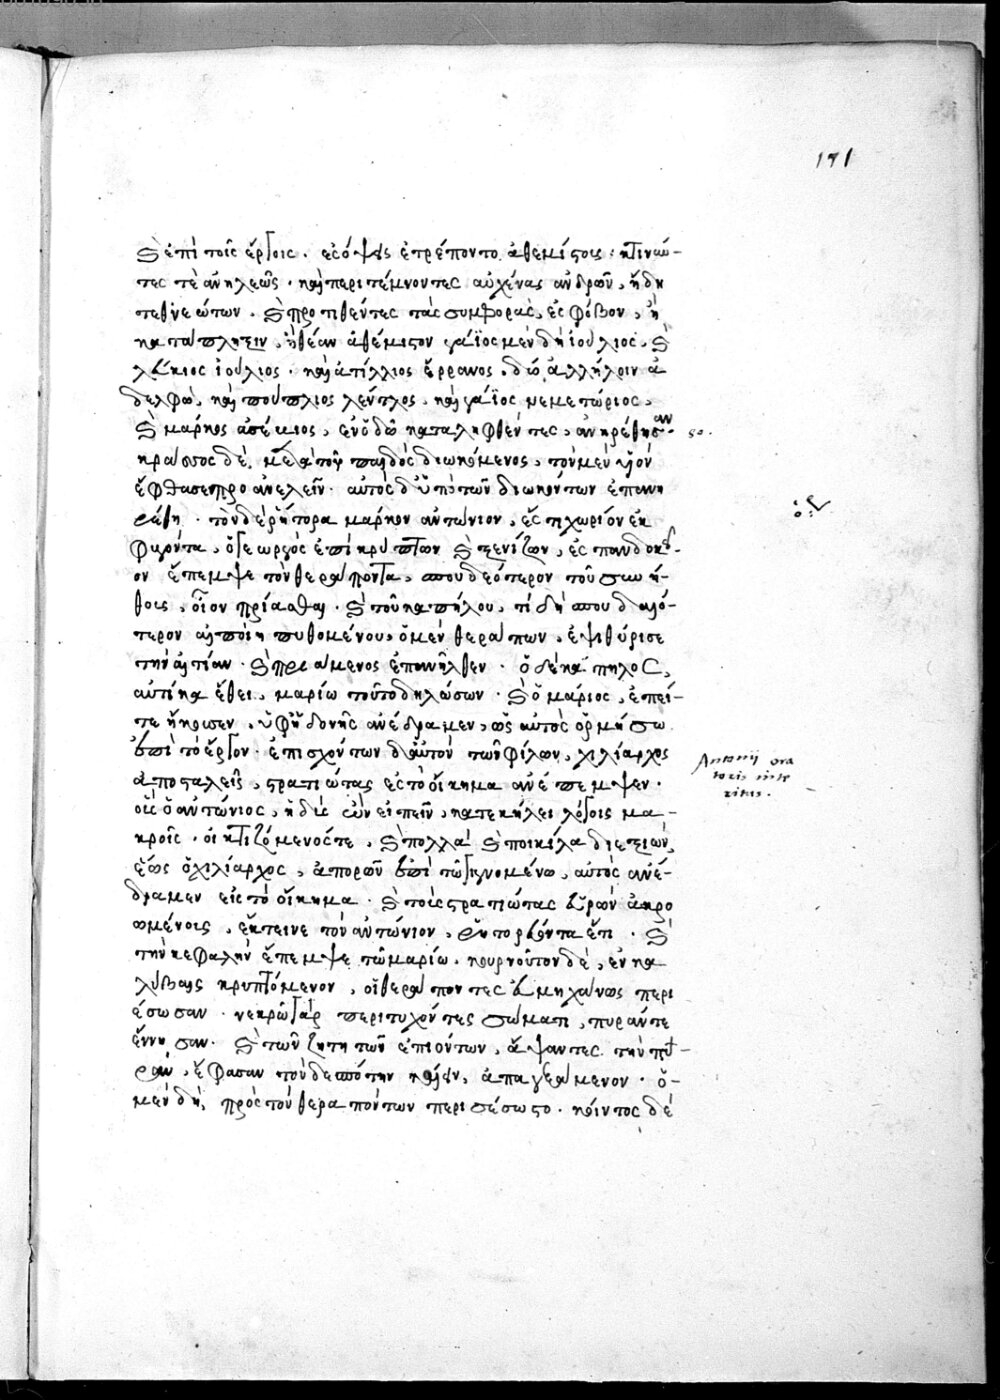 171
καὶ ἐπὶ τοῖς ἔργοις. ἐς ὄψεις ἐτρέποντο ἀθεμίστοις. κτιννύ-
τες τὲ ἀνηλεῶς. καὶ περιτέμνοντες αὐχένας ἀνδρῶν, ἤδη
τεθνεώτων. καὶ προτιθέντες τὰς συμφορὰς, ἐς φόβον, ἢ
κατάπληξιν, ἢ θέαν ἀθέμιστον γάϊος μὲν δὴ ἰούλιος, καὶ
λεύκιος ἰούλιος. καὶ ἀτίλλιος ἔρρανος. δύο ἀλλήλοιν ἀ
δελφὼ, καὶ πούπλιος λέντλος, καὶ γάϊος νεμετώριος,
καὶ μάρκος ἀσέκιος, ἐν ὁδῷ καταληφθέντες, ἀνηρέθησαν.
κράσσος δὲ, μετὰ τοῦ παιδὸς διωκόμενος, τὸν μὲν υἱὸν
ἔφθασε προανελεῖν. αὐτὸς δ' ὑπὸ τῶν διωκόντων ἐπανη
ρέθη. τὸν δὲ ῥήτορα μάρκον ἀντώνιον, ἔς τι χωρίον ἐκ
φυγόντα, ὁ γεωργὸς ἐπικρύπτων καὶ ξενίζων, ἐς πανδοκεῖ-
ον ἔπεμψε τὸν θεράποντα, σπουδεότερον τοῦ συνή-
θους, οἶνον πρίασθαι. καὶ τοῦ καπήλου, τί δὴ σπουδαιό-
τερον αἰτοίη πυθομένου, ὁ μὲν θεράπων, ἐψιθύρισε
τὴν αἰτίαν. καὶ πριάμενος ἐπανῆλθεν. ὁ δὲ κάπηλος,
αὐτίκα ἔθει, μαρίω τοῦτο δηλώσων. καὶ ὁ μάριος, ἐπεί-
τε ἤκουσεν, ὑφ' ἡδονῆς ἀνέδραμεν, ὡς αὐτὸς ὁρμήσων
ἐπὶ τὸ ἔργον. ἐπισχόντων δ' αὐτὸν τῶν φίλων, χιλίαρχος
ἀποσταλεὶς, στρατιώτας ἐς τὸ οἴκημα ἀνέπεμψεν.
οὓς ὁ ἀντώνιος, ἡδὺς ὢν εἰπεῖν, κατεκήλει λόγοις μα-
κροῖς. οἰκτιζόμενός τε, καὶ πολλὰ καὶ ποικίλα διεξιὼν,
ἕως ὁ χιλίαρχος, ἀπορῶν ἐπὶ τῷ γιγνομένῳ, αὐτὸς ἀνέ-
δραμεν εἰς τὸ οἴκημα. καὶ τοὺς στρατιώτας εὑρὼν ἀκρο
ωμένους, ἔκτεινε τὸν ἀντώνιον, ῥητορεύοντα ἔτι. καὶ
τὴν κεφαλὴν ἔπεμψε τῷ μαρίω. κουρνοῦτον δὲ, ἐν κα
λύβαις κρυπτόμενον, οἱ θεράποντες εὐμηχάνως περι
έσωσαν. νεκρῷ γὰρ περιτυχόντες σώματι, πυράν τε
ἔνησαν. καὶ τῶν ζητητῶν ἐπιόντων, ἅψαντες τὴν πυ-
ρὰν, ἔφασαν τὸν δεσπότην καίειν, ἀπαγξάμενον. ὁ-
μὲν δὴ, πρὸς τῶν θεραπόντων περισέσωστο. κόιντος δὲ
Antonij ora
toris inte
ritus.